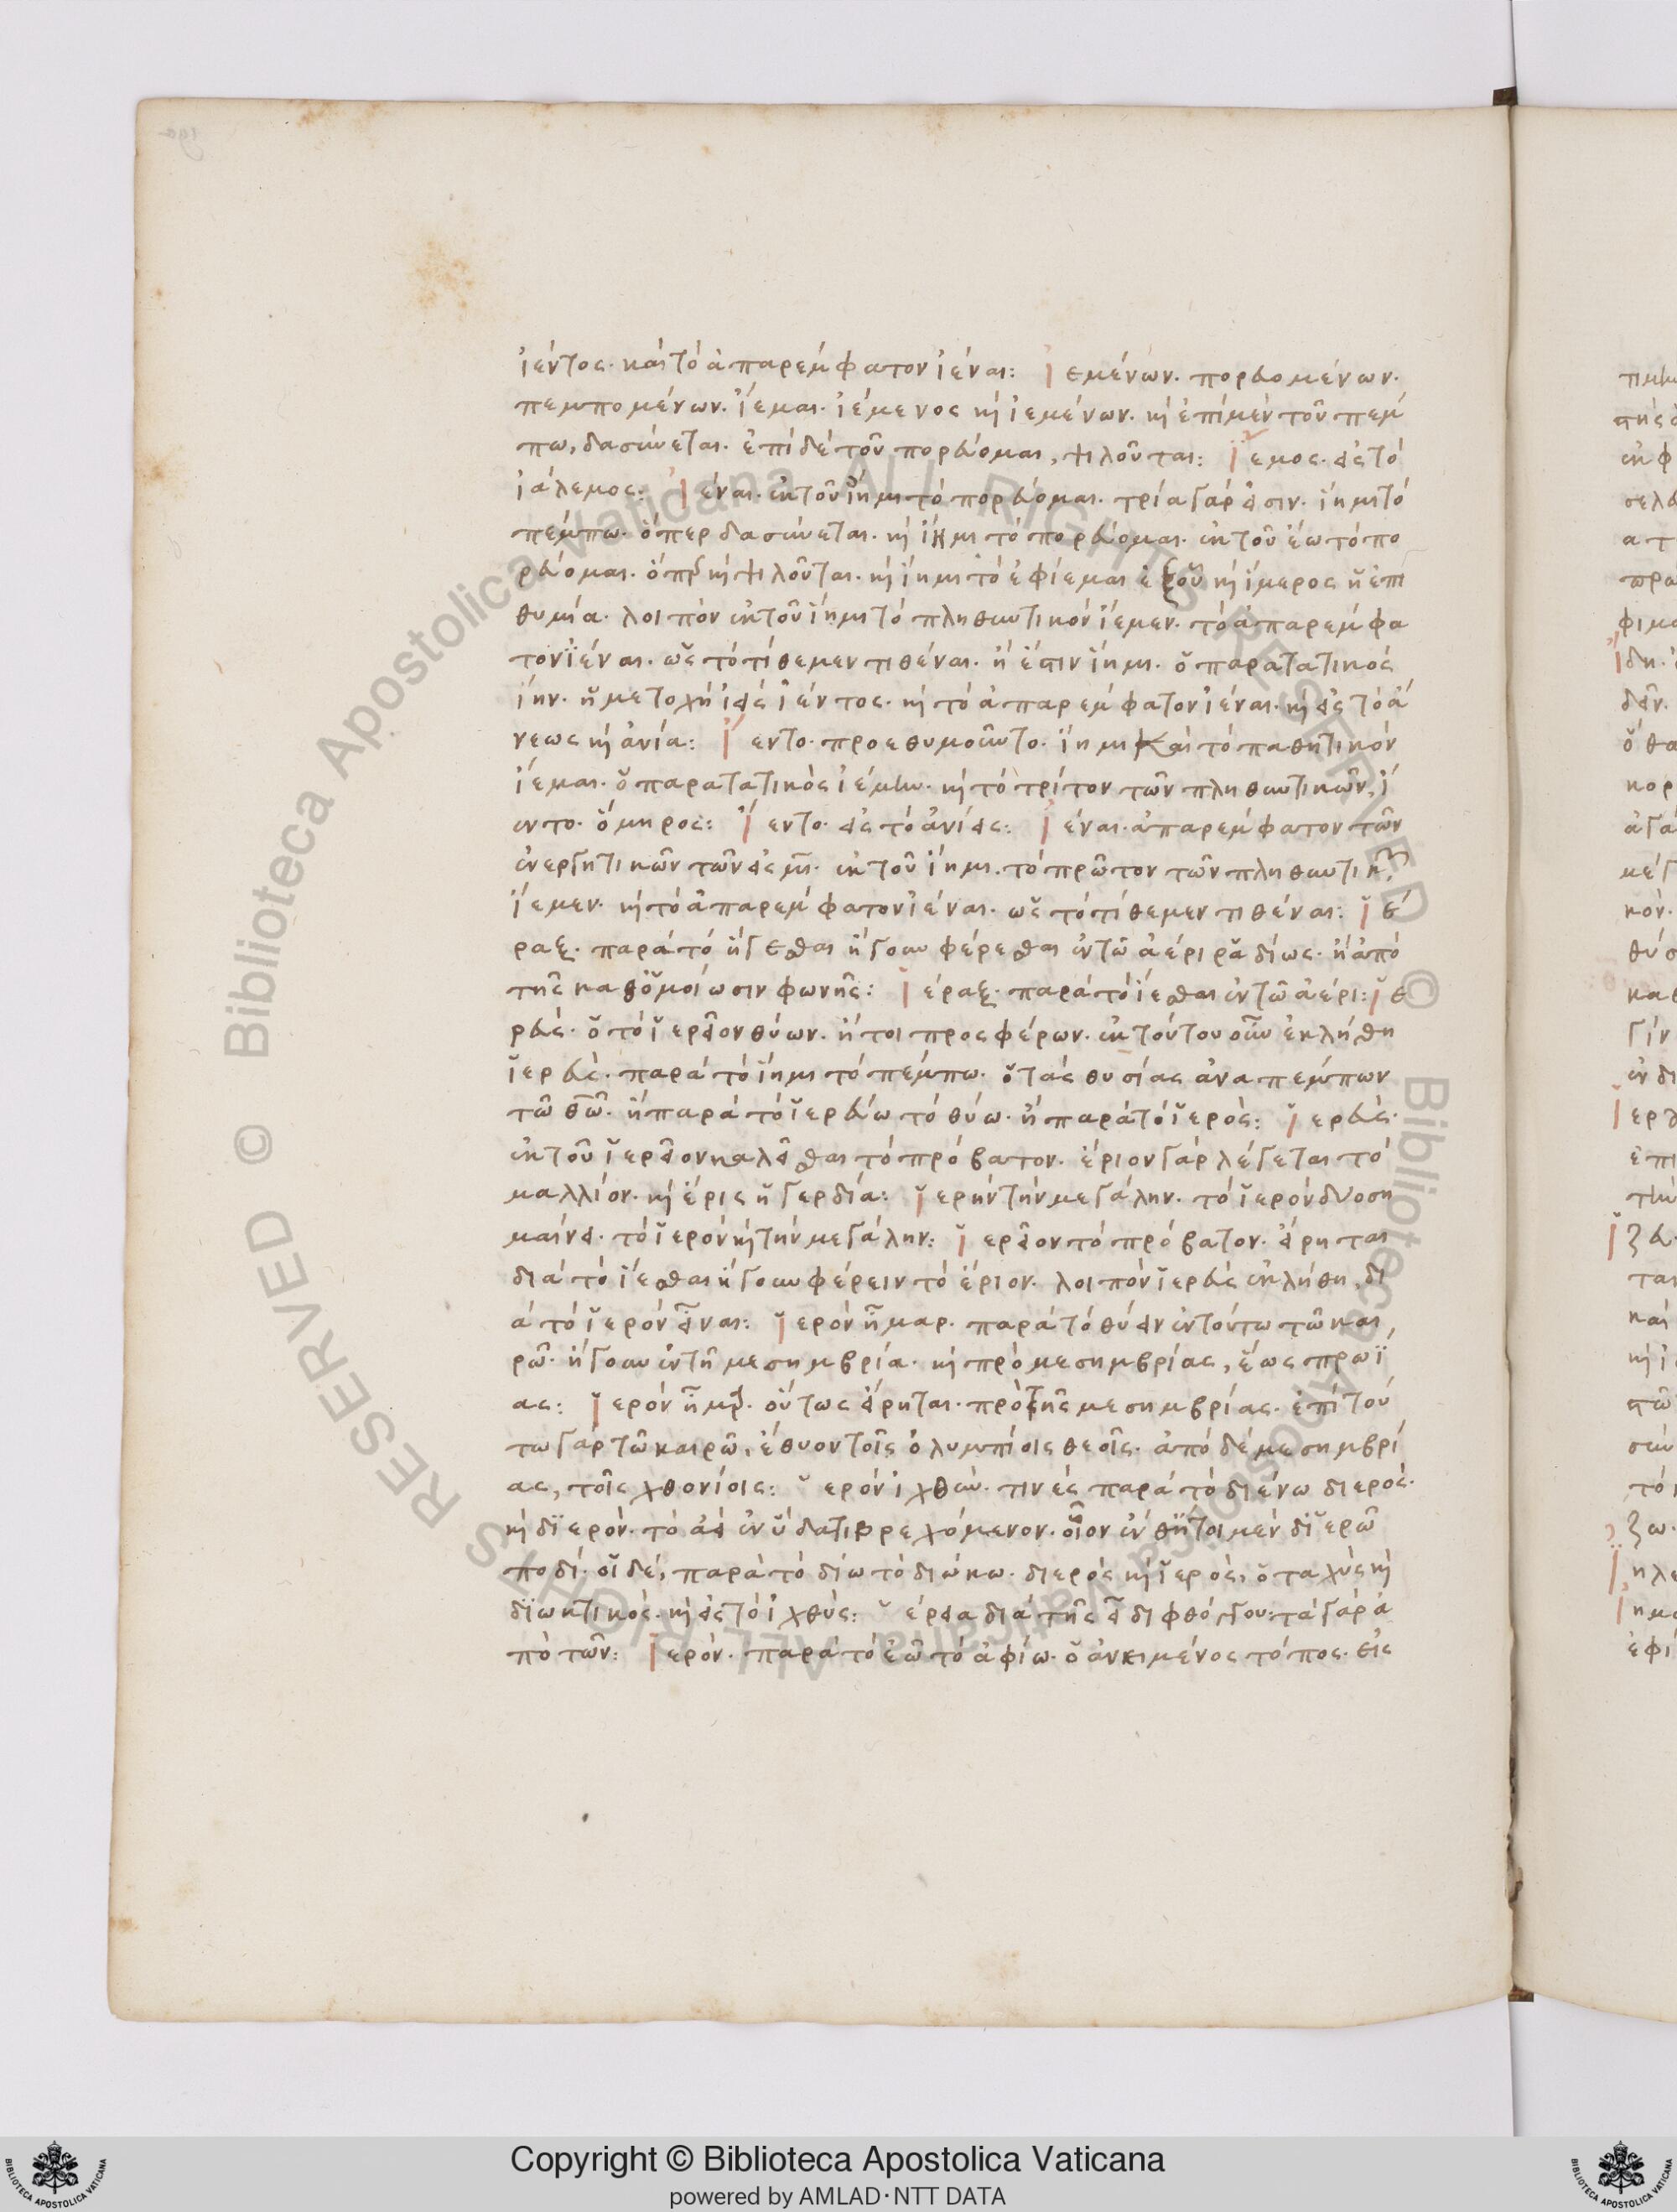 ἰέντος. καὶ τὸ ἀπαρέμφατον ἰέναι: Ἰεμένων. πορευομένων.
πεμπομένων. ἵεμαι. ἱέμενος καὶ ἱεμένων. καὶ ἐπὶ μὲν τοῦ πέμ
πω, δασύνεται. ἐπὶ δὲ τοῦ πορεύομαι, ψιλοῦται: Ἰήεμος. εἰς τὸ
ἰάλεμος: Ἰέναι. ἐκ τοῦ ἴημι τὸ πορεύομαι. τρία γάρ εἰσιν. ἵημι τὸ
πέμπω. ὅπερ δασύνεται. καὶ ἴημι τὸ πορεύομαι. ἐκ τοῦ ἔω τὸ πο
ρεύομαι. ὅπερ καὶ ψιλοῦται. καὶ ἵημι τὸ ἐφίεμαι ἐξ οὗ καὶ ἵμερος ἡ ἐπι
θυμία. λοιπὸν ἐκ τοῦ ἵημι τὸ πληθυντικὸν ἵεμεν. τὸ ἀπαρέμφα
τον ἱέναι. ὡς τὸ τίθεμεν τιθέναι. ἢ ἔστιν ἵημι. ὁ παρατατικὸς
ἵην. ἡ μετοχὴ ἱεὶς ἱέντος. καὶ τὸ ἀπαρέμφατον ἱέναι. καὶ εἰς τὸ ἄ
νεως καὶ ἀνία: Ἵεντο. προεθυμοῦντο. ἵημι καὶ τὸ παθητικὸν
ἵεμαι. ὁ παρατατικὸς ἱέμην. καὶ τὸ τρίτον τῶν πληθυντικῶν, ἵ
εντο. ὅμηρος: Ἵεντο. εἰς τὸ ἀνίει: Ἰέναι. ἀπαρέμφατον τῶν
ἐνεργητικῶν τῶν εἰς μι. ἐκ τοῦ ἵημι. τὸ πρῶτον τῶν πληθυντικῶν,
ἵεμεν. καὶ τὸ ἀπαρέμφατον ἱέναι. ὡς τὸ τίθεμεν τιθέναι: Ἱέ
ραξ. παρὰ τὸ ἵεσθαι ἤγουν φέρεσθαι ἐν τῷ ἀέρι ῥαδίως. ἢ ἀπὸ
τῆς καθ' ὁμοίωσιν φωνῆς: Ἱέραξ. παρὰ τὸ ἵεσθαι ἐν τῷ ἀέρι: Ἱε
ρεύς. ὁ τὸ ἱερεῖον θύων. ἤτοι προσφέρων. ἐκ τούτου οὖν ἐκλήθη
ἱερεύς. παρὰ τὸ ἵημι τὸ πέμπω. ὁ τὰς θυσίας ἀναπέμπων
τῷ θῷ. ἢ παρὰ τὸ ἱερεύω τὸ θύω. ἢ παρὰ τὸ ἱερός: Ἱερεύς.
ἐκ τοῦ ἱερεῖον καλεῖσθαι τὸ πρόβατον. ἔριον γὰρ λέγεται τὸ
μαλλίον. καὶ ἔρις ἡ γερδία: Ἱερὴν τὴν μεγάλην. τὸ ἱερὸν δύο ση
μαίνει. τὸ ἱερὸν καὶ τὴν μεγάλην: Ἱερεῖον τὸ πρόβατον. εἴρηται
διὰ τὸ ἵεσθαι ἤγουν φέρειν τὸ ἔριον. λοιπὸν ἱερεὺς ἐκλήθη, δι
ὰ τὸ ἱερὸν εἶναι: Ἱερὸν ἦμαρ. παρὰ τὸ θύειν ἐν τούτῳ τῷ και
ρῷ. ἤγουν ἐν τῇ μεσημβρίᾳ. καὶ πρὸ μεσημβρίας, ἕως πρωΐ
ας: Ἱερὸν ἦμαρ. οὕτως εἴρηται. πρὸ τῆς μεσημβρίας. ἐπὶ τού
τῳ γὰρ τῷ καιρῷ, ἔθυον τοῖς ὀλυμπίοις θεοῖς. ἀπὸ δὲ μεσημβρί
ας, τοῖς χθονίοις: ερὸν ἰχθύν. τινὲς παρὰ τὸ διένω διερός.
καὶ διερόν. τὸ ἀεὶ ἐν ὕδατι βρεχόμενον. οἷον ἐν θήτοι μὲν διερῷ
ποδί. οἱ δέ, παρὰ τὸ δίω τὸ διώκω. διερὸς καὶ ἱερός, ὁ ταχὺς καὶ
διωκτικός. καὶ εἰς τὸ ἰχθύς: έρεα διὰ τῆς ει διφθόγγου: τὰ γὰρ ἀ
πὸ τῶν: Ἱερόν. παρὰ τὸ ἑῶ τὸ ἀφίω. ὁ ἀνειμένος τόπος. εἰς